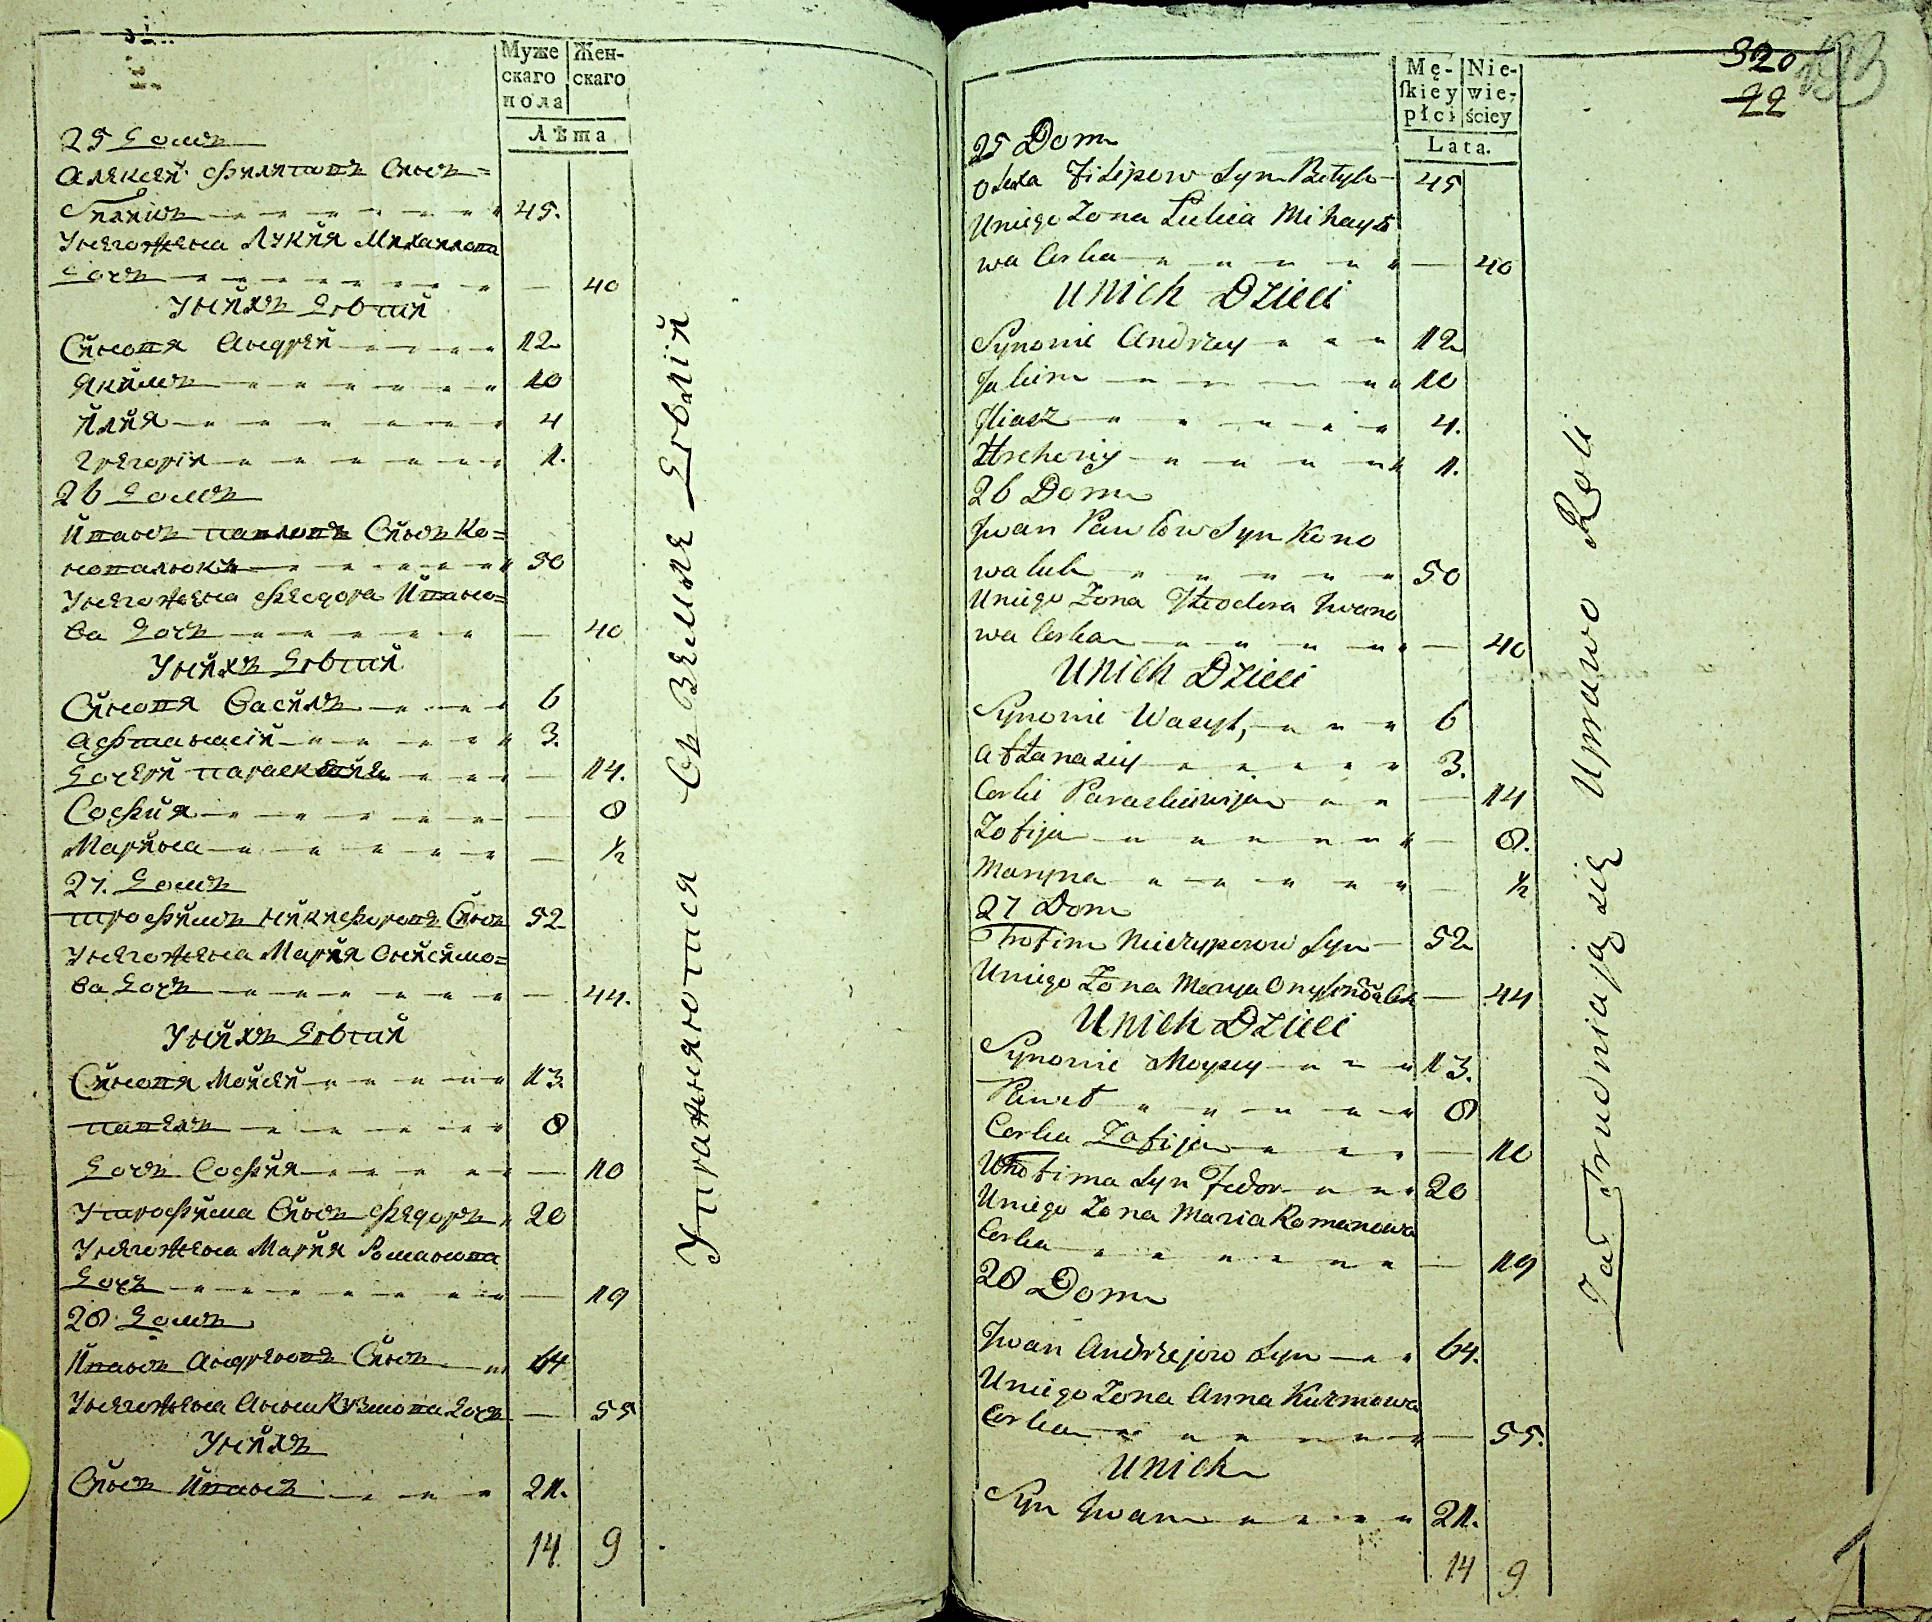 Муже
скаго
пола
Жен-
скаго
Лѣта
25 домъ
Алексей Филиповъ Сынъ
45.
Унего жена Лукия Михайлова
дочь 40
Унихъ детий
Синовя Андрей 12
Якимъ 10
Илия 4
Грегорій 1.
26 домъ
Иванъ Павловъ Сынъ Ко=
новалюкъ 50
Унего жена Феодора Ивано=
ва дочь 40
Унихъ детий
Синовя Василъ 6
Афтанасій 3.
дочери Параскевия 14.
София 8
Марина 1/2
27. домъ
Трофимъ Никифоровъ Сынъ 52
Унего жена Мария Онисимо=
ва дочь 44.
Унихъ детий
Синовя Мойсей 13.
Павелъ 8
дочь София 10
У Трофима Сынъ Федоръ 20
Унего жена Мария Романова
дочь 19
28 домъ
Иванъ Андреевъ Сынъ 64
Унего жена Анна Кузмова дочь 55
Унихъ
Сынъ Иванъ 21.
14 9
Упражняются Въ Землѣ Дѣліи
320
22
Mę-
ſkiey
płci
Nie-
wie-
ściey
Lata.
25 Dom
Olexa Filipow Syn 45
Uniego Zona Lukia Mihayło
wa Corka 40
Unich Dzieci
Synowie Andrzey 12
Jakim 10
Jliasz 4.
Hrehory 1.
26 Dom
Jwan Pawłow Syn Kono
waluk 50
Uniego Zona Theodora Jwano
wa Corka 40
Unich Dzieci
Synowie Wasyl, 6
Aftanasiy 3.
Corki Paraskiewija 14
Zofija 8.
Maryna 1/2
27 Dom
Trofim Niczyporow Syn 52
Uniego Zona Marya Onysimowa Cor 44
Unich Dzieci
Synowie Moysey 13.
Paweł 8
Corka Zofija 10
U Trofima Syn Fedor 20
Uniego Zona Maria Romanowa
Corka 19
28 Dom
Jwan Andrzejow Syn 64.
Uniego Zona Anna Kuzmowa
Corka 55.
Unich
Syn Jwan 21.
14 9
Zatrudniaią się Uprawo Roli